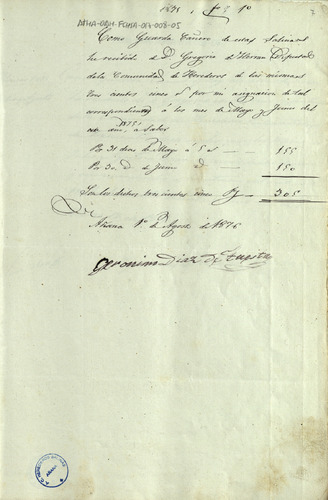 1875
Nº 1º
7
ATHA-DAH-FCHSA-017-008-05
Como Guarda Cañero de estas Salinas
he recibido de D. Gregorio de Herran Diputado
de la Comunidad de Herederos de las mismas
tres cientos cinco rs por mi asignacion de tal
correspondientes á los mes de Mayo y Junio del
año 1875, á saber
Por 31 dias de Mayo á 5 rs — 155
Por 30 d de Junio — 150
Son los dichos trescientos cinco rs — 305
Añana 1º de Agosto de 1875
Geronimo Diaz De